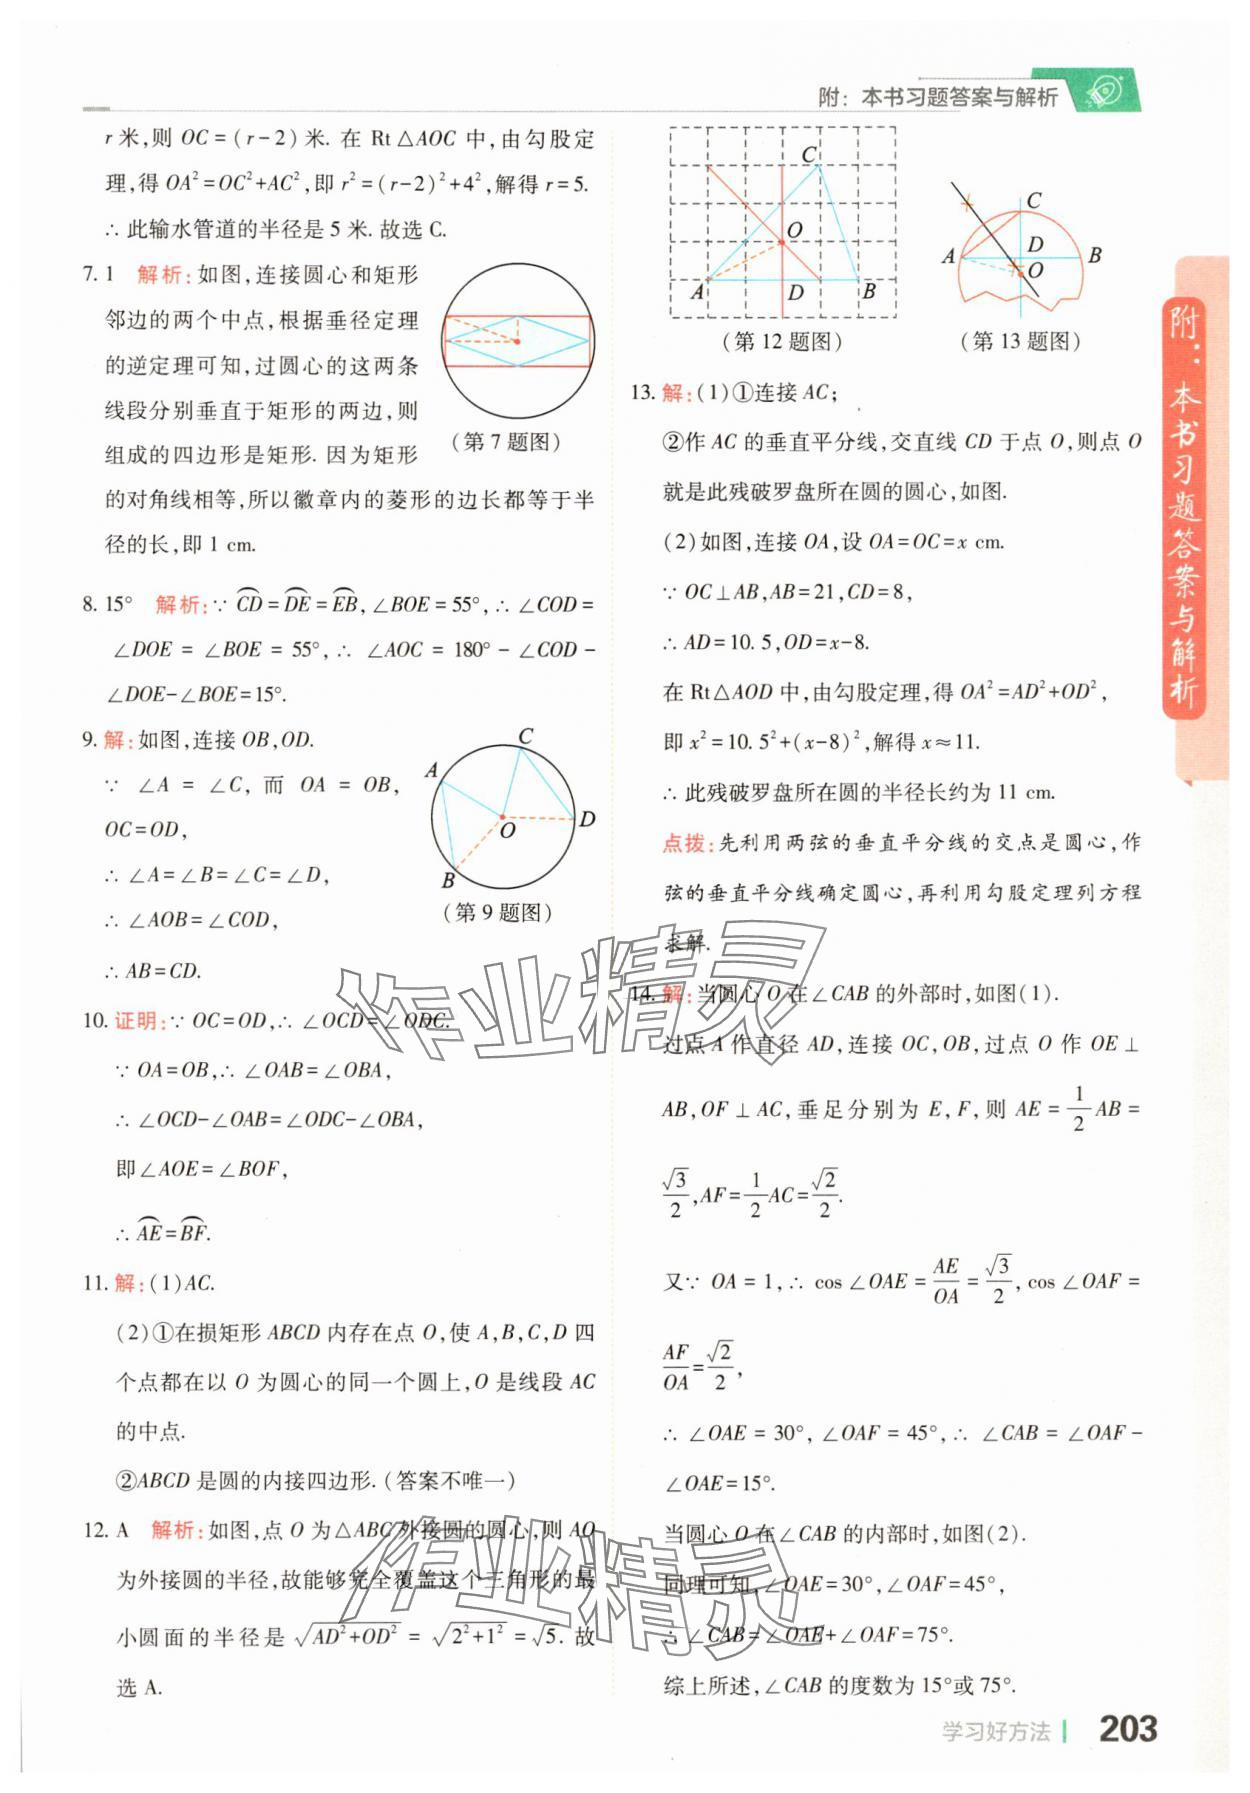 附：本书习题答案与解析
r 米,则 OC=(r-2)米. 在 Rt△AOC 中,由勾股定
理,得 OA²=OC²+AC²,即 r²=(r-2)²+4²,解得 r=5.
∴ 此输水管道的半径是 5 米. 故选 C.
7. 1 解析:如图,连接圆心和矩形
邻边的两个中点,根据垂径定理
的逆定理可知,过圆心的这两条
线段分别垂直于矩形的两边,则
组成的四边形是矩形. 因为矩形
(第 7 题图)
的对角线相等,所以徽章内的菱形的边长都等于半
径的长,即 1 cm.
8. 15° 解析:∵ C͡D=D͡E=E͡B,∠BOE=55°,∴ ∠COD=
∠DOE = ∠BOE = 55°,∴ ∠AOC = 180° - ∠COD -
∠DOE-∠BOE=15°.
9. 解:如图,连接 OB,OD.
∵ ∠A = ∠C,而 OA = OB,
OC=OD,
∴ ∠A=∠B=∠C=∠D,
∴ ∠AOB=∠COD,
∴ AB=CD.
A
B
C
D
O
(第 9 题图)
10. 证明:∵ OC=OD,∴ ∠OCD=∠ODC.
∵ OA=OB,∴ ∠OAB=∠OBA,
∴ ∠OCD-∠OAB=∠ODC-∠OBA,
即∠AOE=∠BOF,
∴ A͡E=B͡F.
11. 解:(1)AC.
(2)①在损矩形 ABCD 内存在点 O,使 A,B,C,D 四
个点都在以 O 为圆心的同一个圆上,O 是线段 AC
的中点.
②ABCD 是圆的内接四边形.(答案不唯一)
12. A 解析:如图,点 O 为△ABC 外接圆的圆心,则 AO
为外接圆的半径,故能够完全覆盖这个三角形的最
小圆面的半径是 √(AD²+OD²) = √(2²+1²) = √5. 故
选 A.
C
O
A
D
B
(第 12 题图)
C
A
D
B
O
(第 13 题图)
13. 解:(1)①连接 AC;
②作 AC 的垂直平分线,交直线 CD 于点 O,则点 O
就是此残破罗盘所在圆的圆心,如图.
(2)如图,连接 OA,设 OA=OC=x cm.
∵ OC⊥AB,AB=21,CD=8,
∴ AD=10. 5,OD=x-8.
在 Rt△AOD 中,由勾股定理,得 OA²=AD²+OD²,
即 x²=10. 5²+(x-8)²,解得 x≈11.
∴ 此残破罗盘所在圆的半径长约为 11 cm.
点拨:先利用两弦的垂直平分线的交点是圆心,作
弦的垂直平分线确定圆心,再利用勾股定理列方程
求解.
14. 解:当圆心 O 在∠CAB 的外部时,如图(1).
过点 A 作直径 AD,连接 OC,OB,过点 O 作 OE⊥
AB,OF⊥AC,垂足分别为 E,F,则 AE=1/2 AB=
√3/2,AF=1/2 AC=√2/2.
又∵ OA=1,∴ cos∠OAE=AE/OA=√3/2,cos∠OAF=
AF/OA=√2/2,
∴ ∠OAE = 30°,∠OAF = 45°,∴ ∠CAB = ∠OAF -
∠OAE=15°.
当圆心 O 在∠CAB 的内部时,如图(2).
同理可知,∠OAE=30°,∠OAF=45°,
∴ ∠CAB=∠OAE+∠OAF=75°.
综上所述,∠CAB 的度数为 15°或 75°.
附：本书习题答案与解析
作业精灵
作业精灵
学习好方法 203